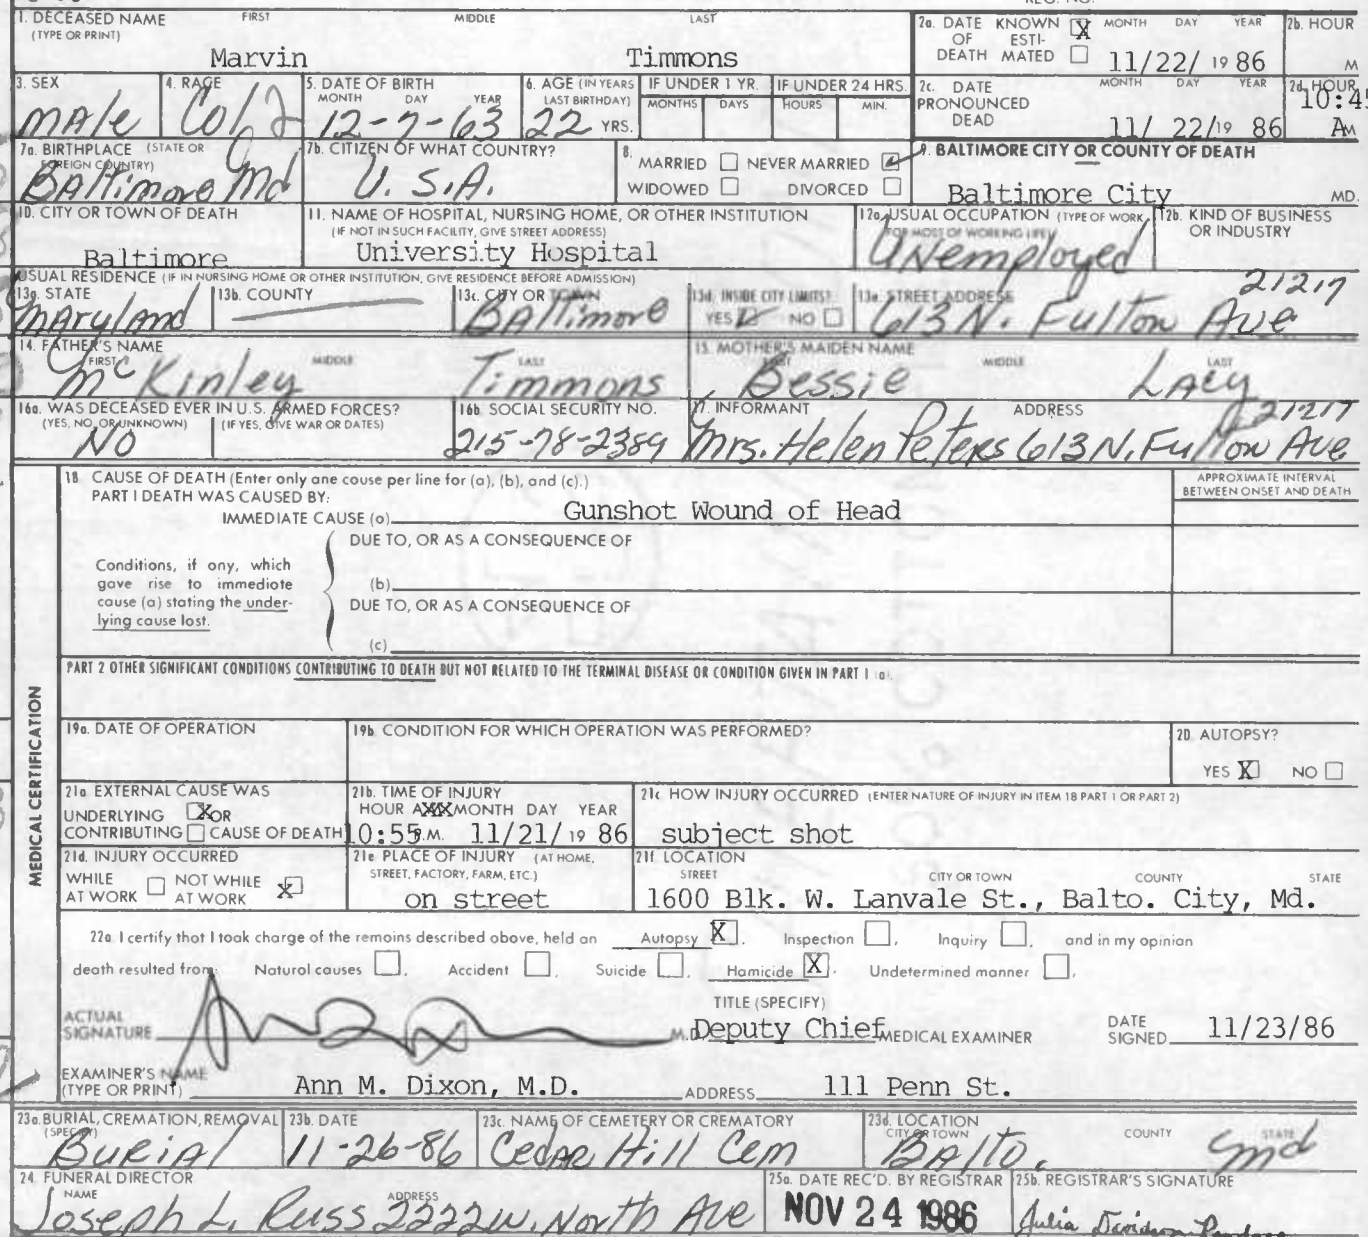 1. DECEASED NAME FIRST MIDDLE LAST
(TYPE OR PRINT)
Marvin Timmons
2a. DATE OF DEATH KNOWN X ESTIMATED MONTH DAY YEAR
11/22/ 19 86
2b. HOUR
M
3. SEX
Male
4. RACE
Col
5. DATE OF BIRTH
MONTH DAY YEAR
12-7-63
6. AGE (IN YEARS LAST BIRTHDAY)
22 YRS.
IF UNDER 1 YR. IF UNDER 24 HRS.
MONTHS DAYS HOURS MIN.
2c. DATE PRONOUNCED DEAD MONTH DAY YEAR
11/ 22/19 86
2d. HOUR
10:45
AM
7a. BIRTHPLACE (STATE OR FOREIGN COUNTRY)
Baltimore Md
7b. CITIZEN OF WHAT COUNTRY?
U.S.A.
8. MARRIED NEVER MARRIED
WIDOWED DIVORCED
9. BALTIMORE CITY OR COUNTY OF DEATH
Baltimore City MD.
10. CITY OR TOWN OF DEATH
Baltimore
11. NAME OF HOSPITAL, NURSING HOME, OR OTHER INSTITUTION
(IF NOT IN SUCH FACILITY, GIVE STREET ADDRESS)
University Hospital
12a. USUAL OCCUPATION (TYPE OF WORK FOR MOST OF WORKING LIFE)
Unemployed
12b. KIND OF BUSINESS OR INDUSTRY
USUAL RESIDENCE (IF IN NURSING HOME OR OTHER INSTITUTION, GIVE RESIDENCE BEFORE ADMISSION)
13a. STATE
Maryland
13b. COUNTY
13c. CITY OR TOWN
Baltimore
13d. INSIDE CITY LIMITS?
YES NO
13e. STREET ADDRESS
21217
613 N. Fulton Ave
14. FATHER'S NAME
FIRST MIDDLE LAST
McKinley Timmons
15. MOTHER'S MAIDEN NAME
FIRST MIDDLE LAST
Bessie Lacy
16a. WAS DECEASED EVER IN U.S. ARMED FORCES?
(YES, NO, OR UNKNOWN) (IF YES, GIVE WAR OR DATES)
No
16b. SOCIAL SECURITY NO.
215-78-2389
17. INFORMANT ADDRESS
21217
Mrs. Helen Peters 613 N. Fulton Ave
MEDICAL CERTIFICATION
18. CAUSE OF DEATH (Enter only one cause per line for (a), (b), and (c).)
PART I DEATH WAS CAUSED BY:
APPROXIMATE INTERVAL BETWEEN ONSET AND DEATH
IMMEDIATE CAUSE (a) Gunshot Wound of Head
DUE TO, OR AS A CONSEQUENCE OF
Conditions, if any, which
gave rise to immediate
cause (a) stating the under-
lying cause last.
(b)
DUE TO, OR AS A CONSEQUENCE OF
(c)
PART 2 OTHER SIGNIFICANT CONDITIONS CONTRIBUTING TO DEATH BUT NOT RELATED TO THE TERMINAL DISEASE OR CONDITION GIVEN IN PART 1 (a).
19a. DATE OF OPERATION
19b. CONDITION FOR WHICH OPERATION WAS PERFORMED?
20. AUTOPSY?
YES X NO
21a. EXTERNAL CAUSE WAS
UNDERLYING X OR
CONTRIBUTING CAUSE OF DEATH
21b. TIME OF INJURY
HOUR AXXX MONTH DAY YEAR
10:55 P.M. 11/21/ 19 86
21c. HOW INJURY OCCURRED (ENTER NATURE OF INJURY IN ITEM 18 PART 1 OR PART 2)
subject shot
21d. INJURY OCCURRED
WHILE AT WORK NOT WHILE AT WORK X
21e. PLACE OF INJURY (AT HOME, STREET, FACTORY, FARM, ETC.)
on street
21f. LOCATION
STREET CITY OR TOWN COUNTY STATE
1600 Blk. W. Lanvale St., Balto. City, Md.
22a. I certify that I took charge of the remains described above, held an Autopsy X, Inspection, Inquiry, and in my opinion
death resulted from: Natural causes, Accident, Suicide, Homicide X, Undetermined manner.
ACTUAL SIGNATURE M.D.
TITLE (SPECIFY)
Deputy Chief MEDICAL EXAMINER
DATE SIGNED 11/23/86
EXAMINER'S NAME
(TYPE OR PRINT) Ann M. Dixon, M.D. ADDRESS 111 Penn St.
23a. BURIAL, CREMATION, REMOVAL
(SPECIFY)
Burial
23b. DATE
11-26-86
23c. NAME OF CEMETERY OR CREMATORY
Cedar Hill Cem
23d. LOCATION
CITY OR TOWN COUNTY STATE
Balto. Md
24. FUNERAL DIRECTOR
NAME ADDRESS
Joseph L. Russ 2222 W. North Ave
25a. DATE REC'D. BY REGISTRAR
NOV 24 1986
25b. REGISTRAR'S SIGNATURE
Julia Davidson